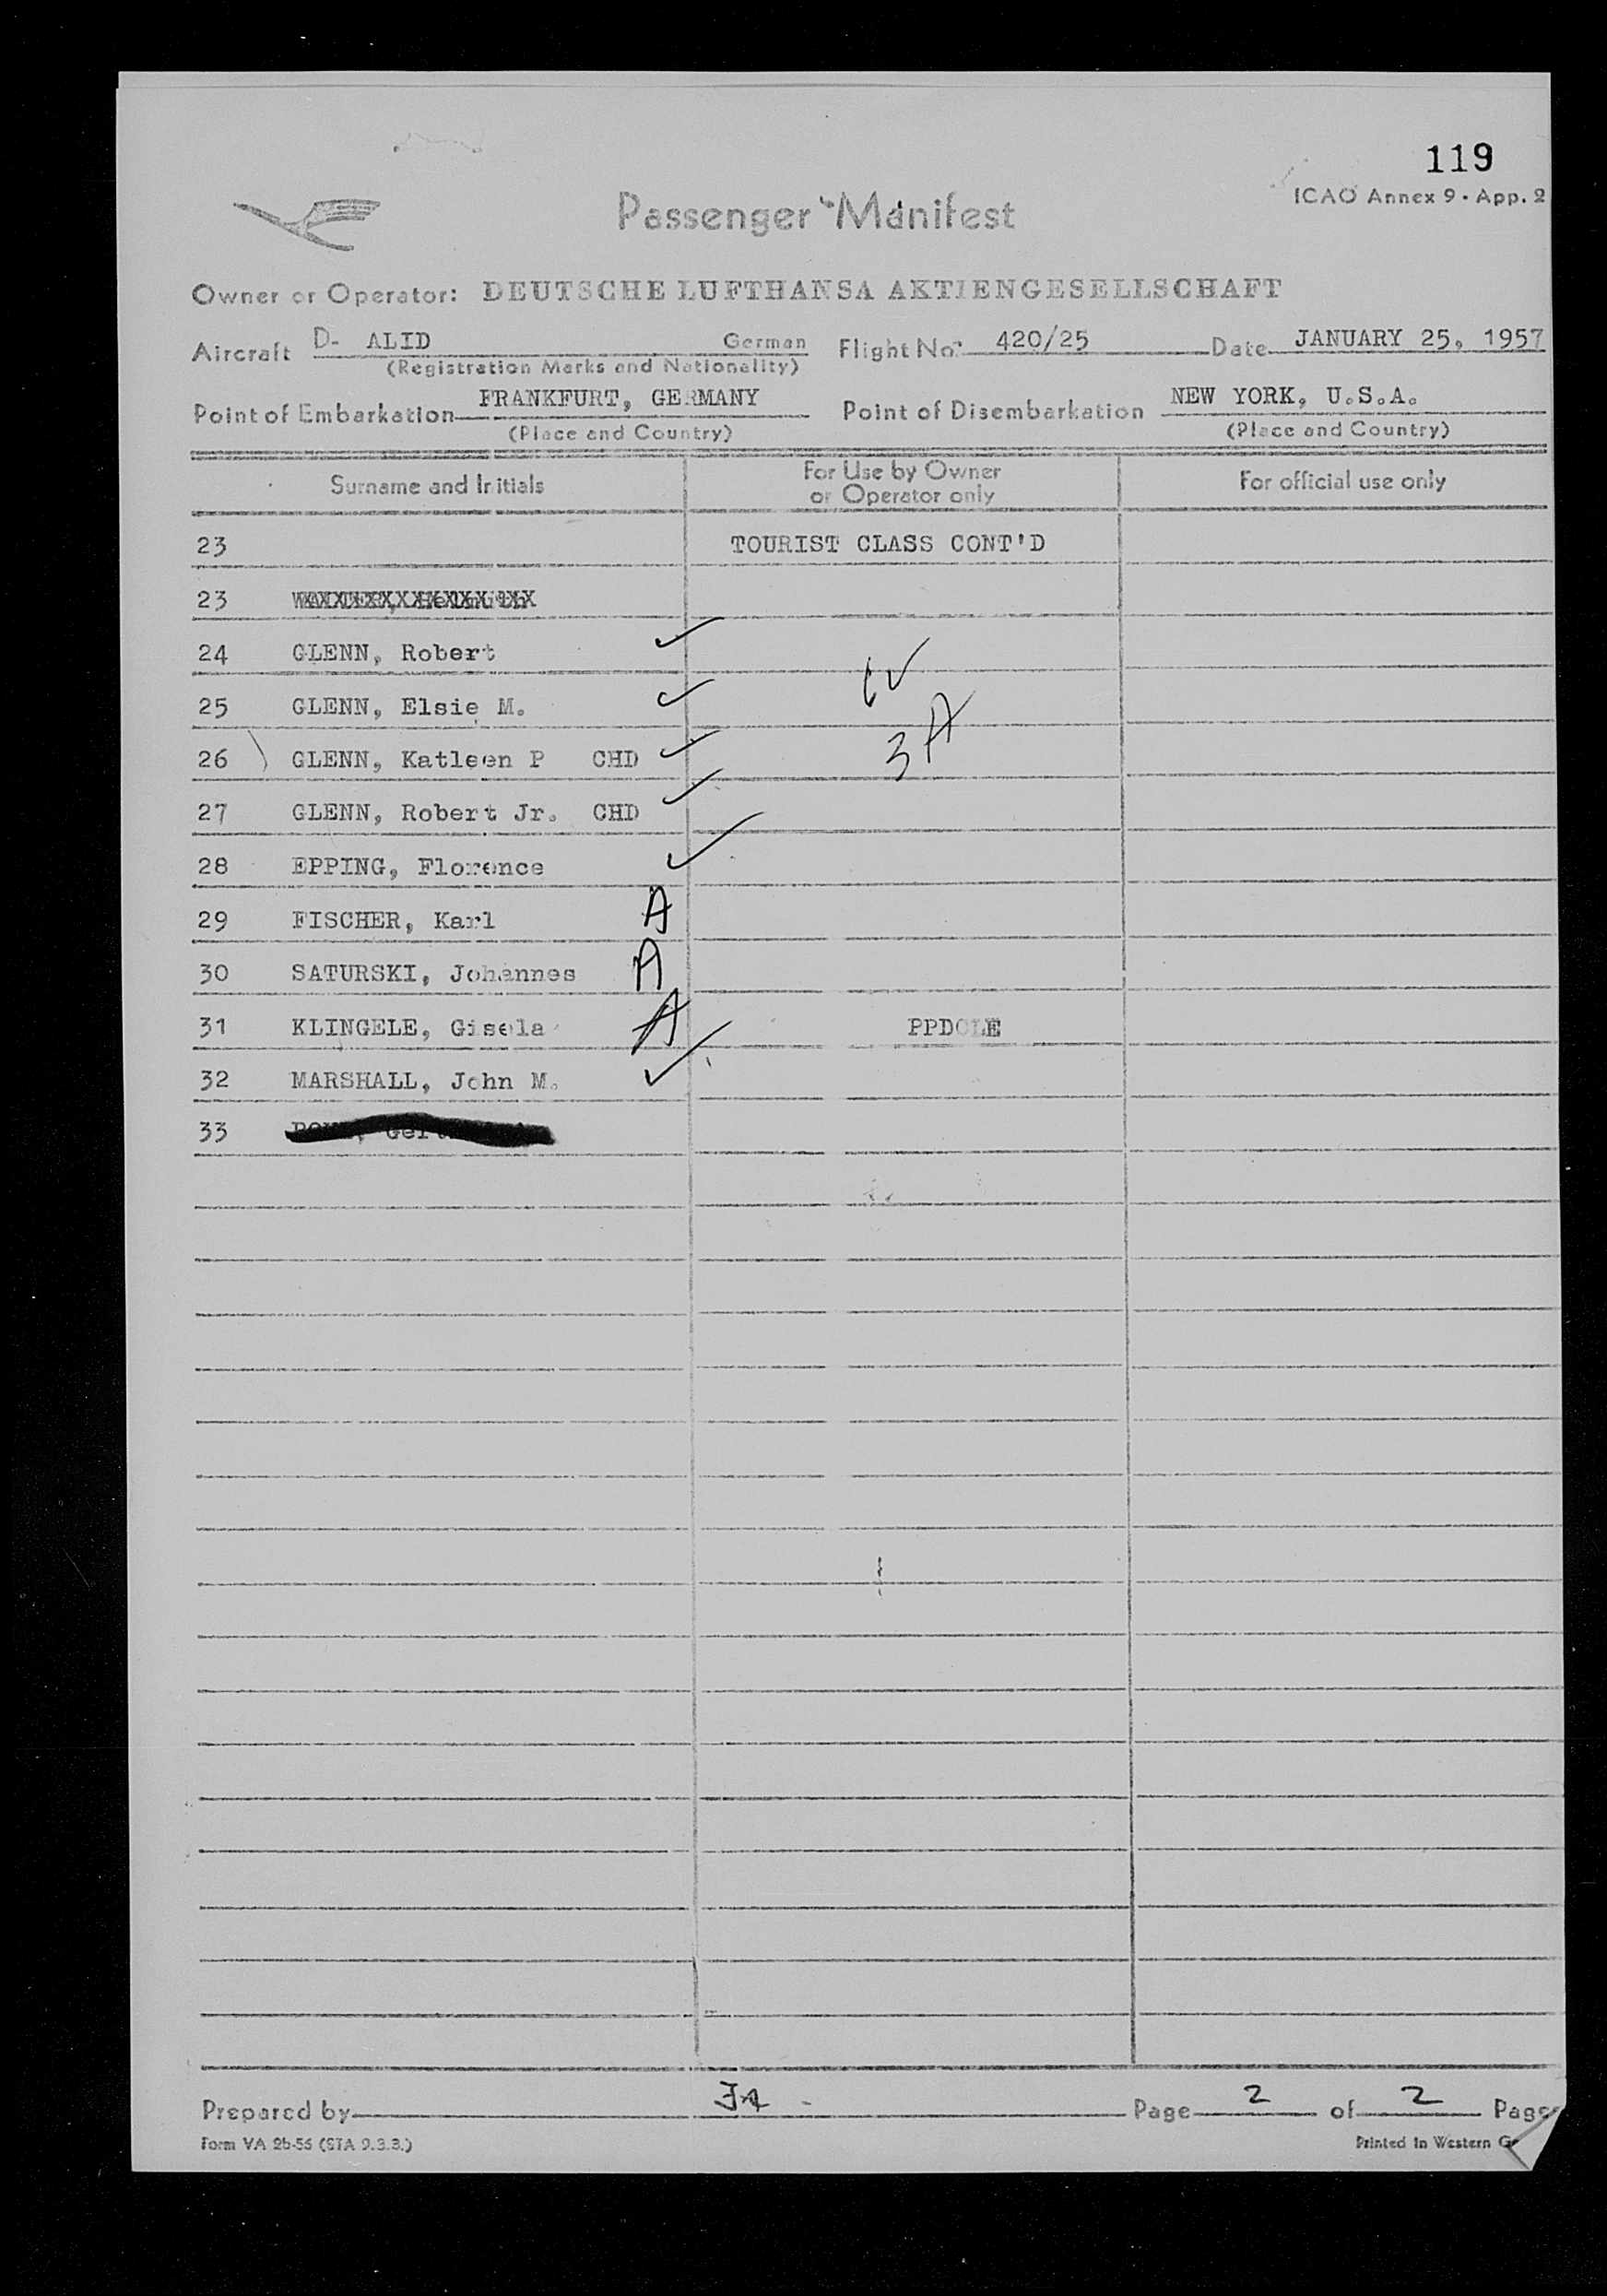 119
ICAO Annex 9 · App. 2
Passenger Manifest
Owner or Operator: DEUTSCHE LUFTHANSA AKTIENGESELLSCHAFT
Aircraft D- ALID German Flight No. 420/25 Date JANUARY 25, 1957
(Registration Marks and Nationality)
Point of Embarkation FRANKFURT, GERMANY Point of Disembarkation NEW YORK, U.S.A.
(Place and Country) (Place and Country)
Surname and Initials For Use by Owner or Operator only For official use only
23 TOURIST CLASS CONT'D
23
24 GLENN, Robert
25 GLENN, Elsie M.
26 GLENN, Katleen P CHD 3A
27 GLENN, Robert Jr. CHD
28 EPPING, Florence
29 FISCHER, Karl A
30 SATURSKI, Johannes A
31 KLINGELE, Gisela A PPDCLE
32 MARSHALL, John M.
33
Prepared by Page 2 of 2 Page
Form VA 2b-56 (STA 9.3.3.) Printed in Western